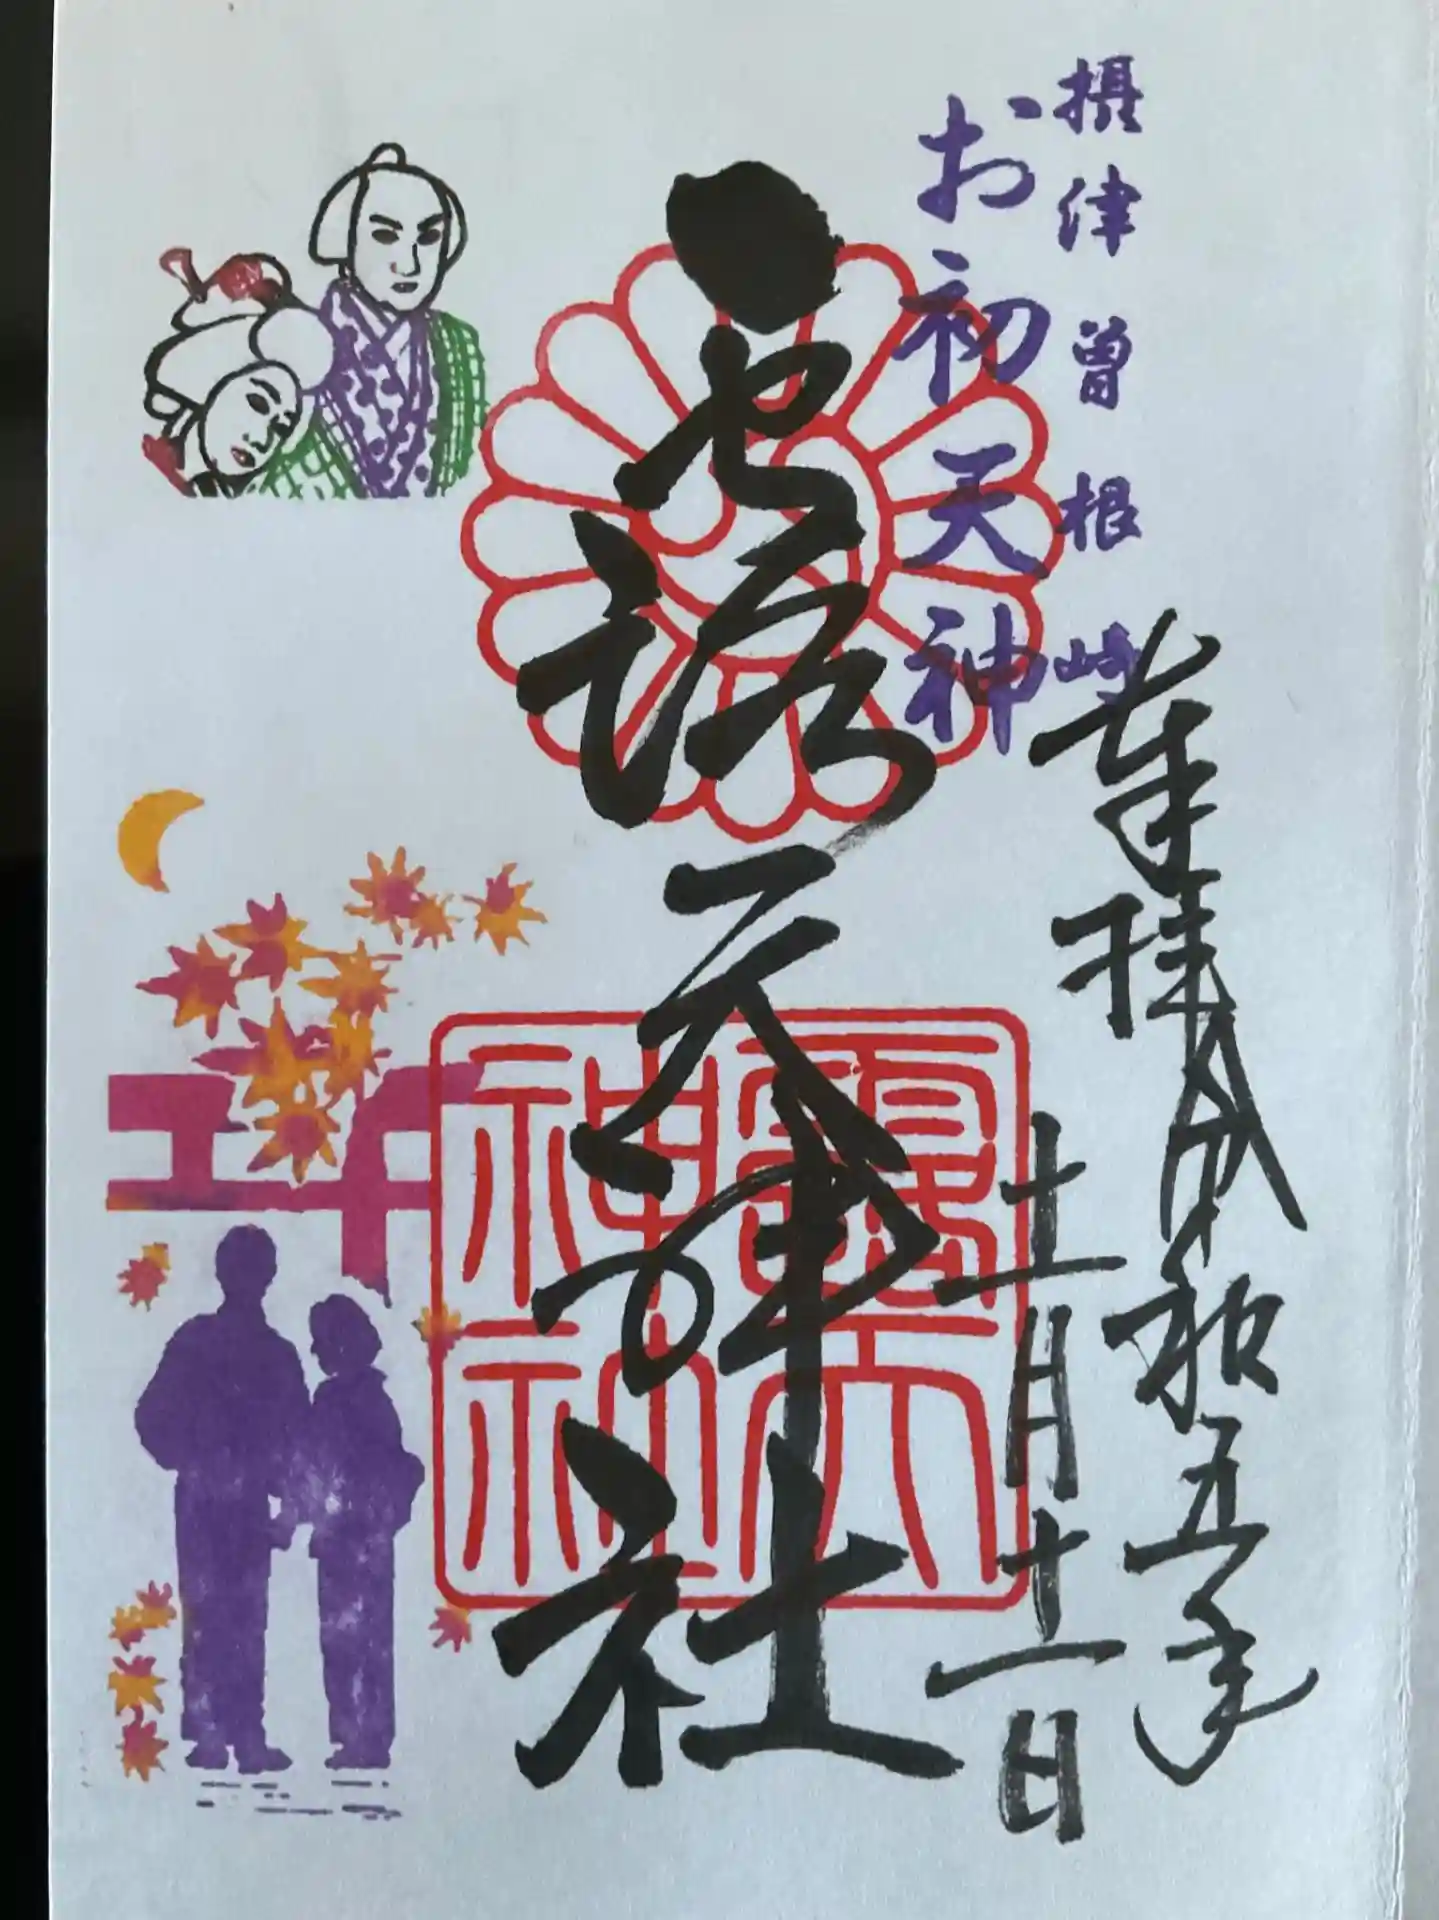 摂津曽根崎
お初天神
奉拝 令和五年
十一月十一日
露天神社
露天
神社